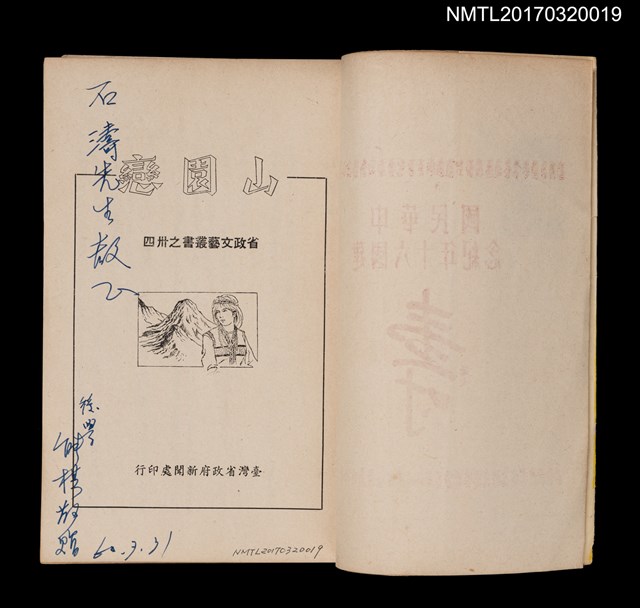 NMTL20170320019
石濤先生教正
山園戀
省政文藝叢書之卅四
臺灣省政府新聞處印行
敬贈 60.3.31
NMTL20170320019
中華民國
建國六十年紀念